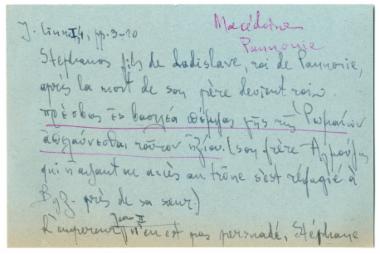 J. Cinn I,4, pp. 9-10
Macédoine
Pannonie
Stéphanos fils de Ladislave, roi de Pannonie,
après la mort de son père devient roi.
πρέσβεις ἐς βασιλέα πέμψας γῆς τῆς Ῥωμαίων
ἀπελαύνεσθαι τοῦτον ἠξίου. (son frère Ἀλμούζης
qui n'ayant accès au trône s'est réfugié à
Byz. près de sa sœur)
L'empereur Jean II n'en est pas persuadé, Stéphane